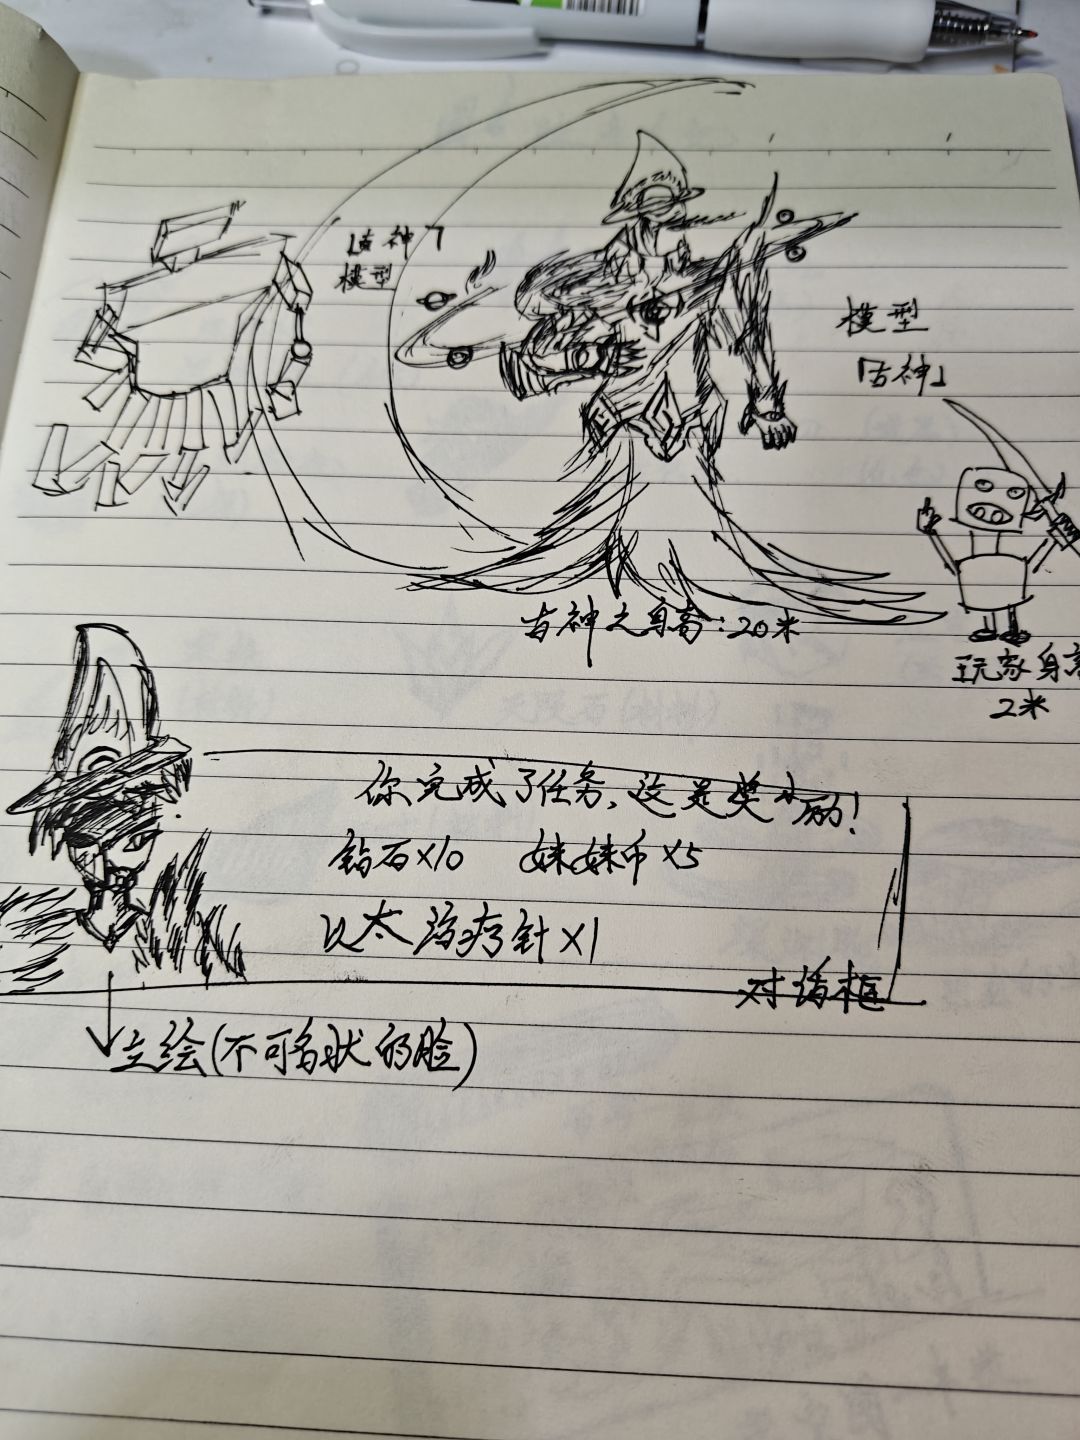 「古神」
模型
模型
「古神」
古神之身高：20米
玩家身高
2米
你完成了任务，这是奖励！
钻石×10 妹妹币×5
以太治疗针×1
对话框
立绘(不可名状的脸)